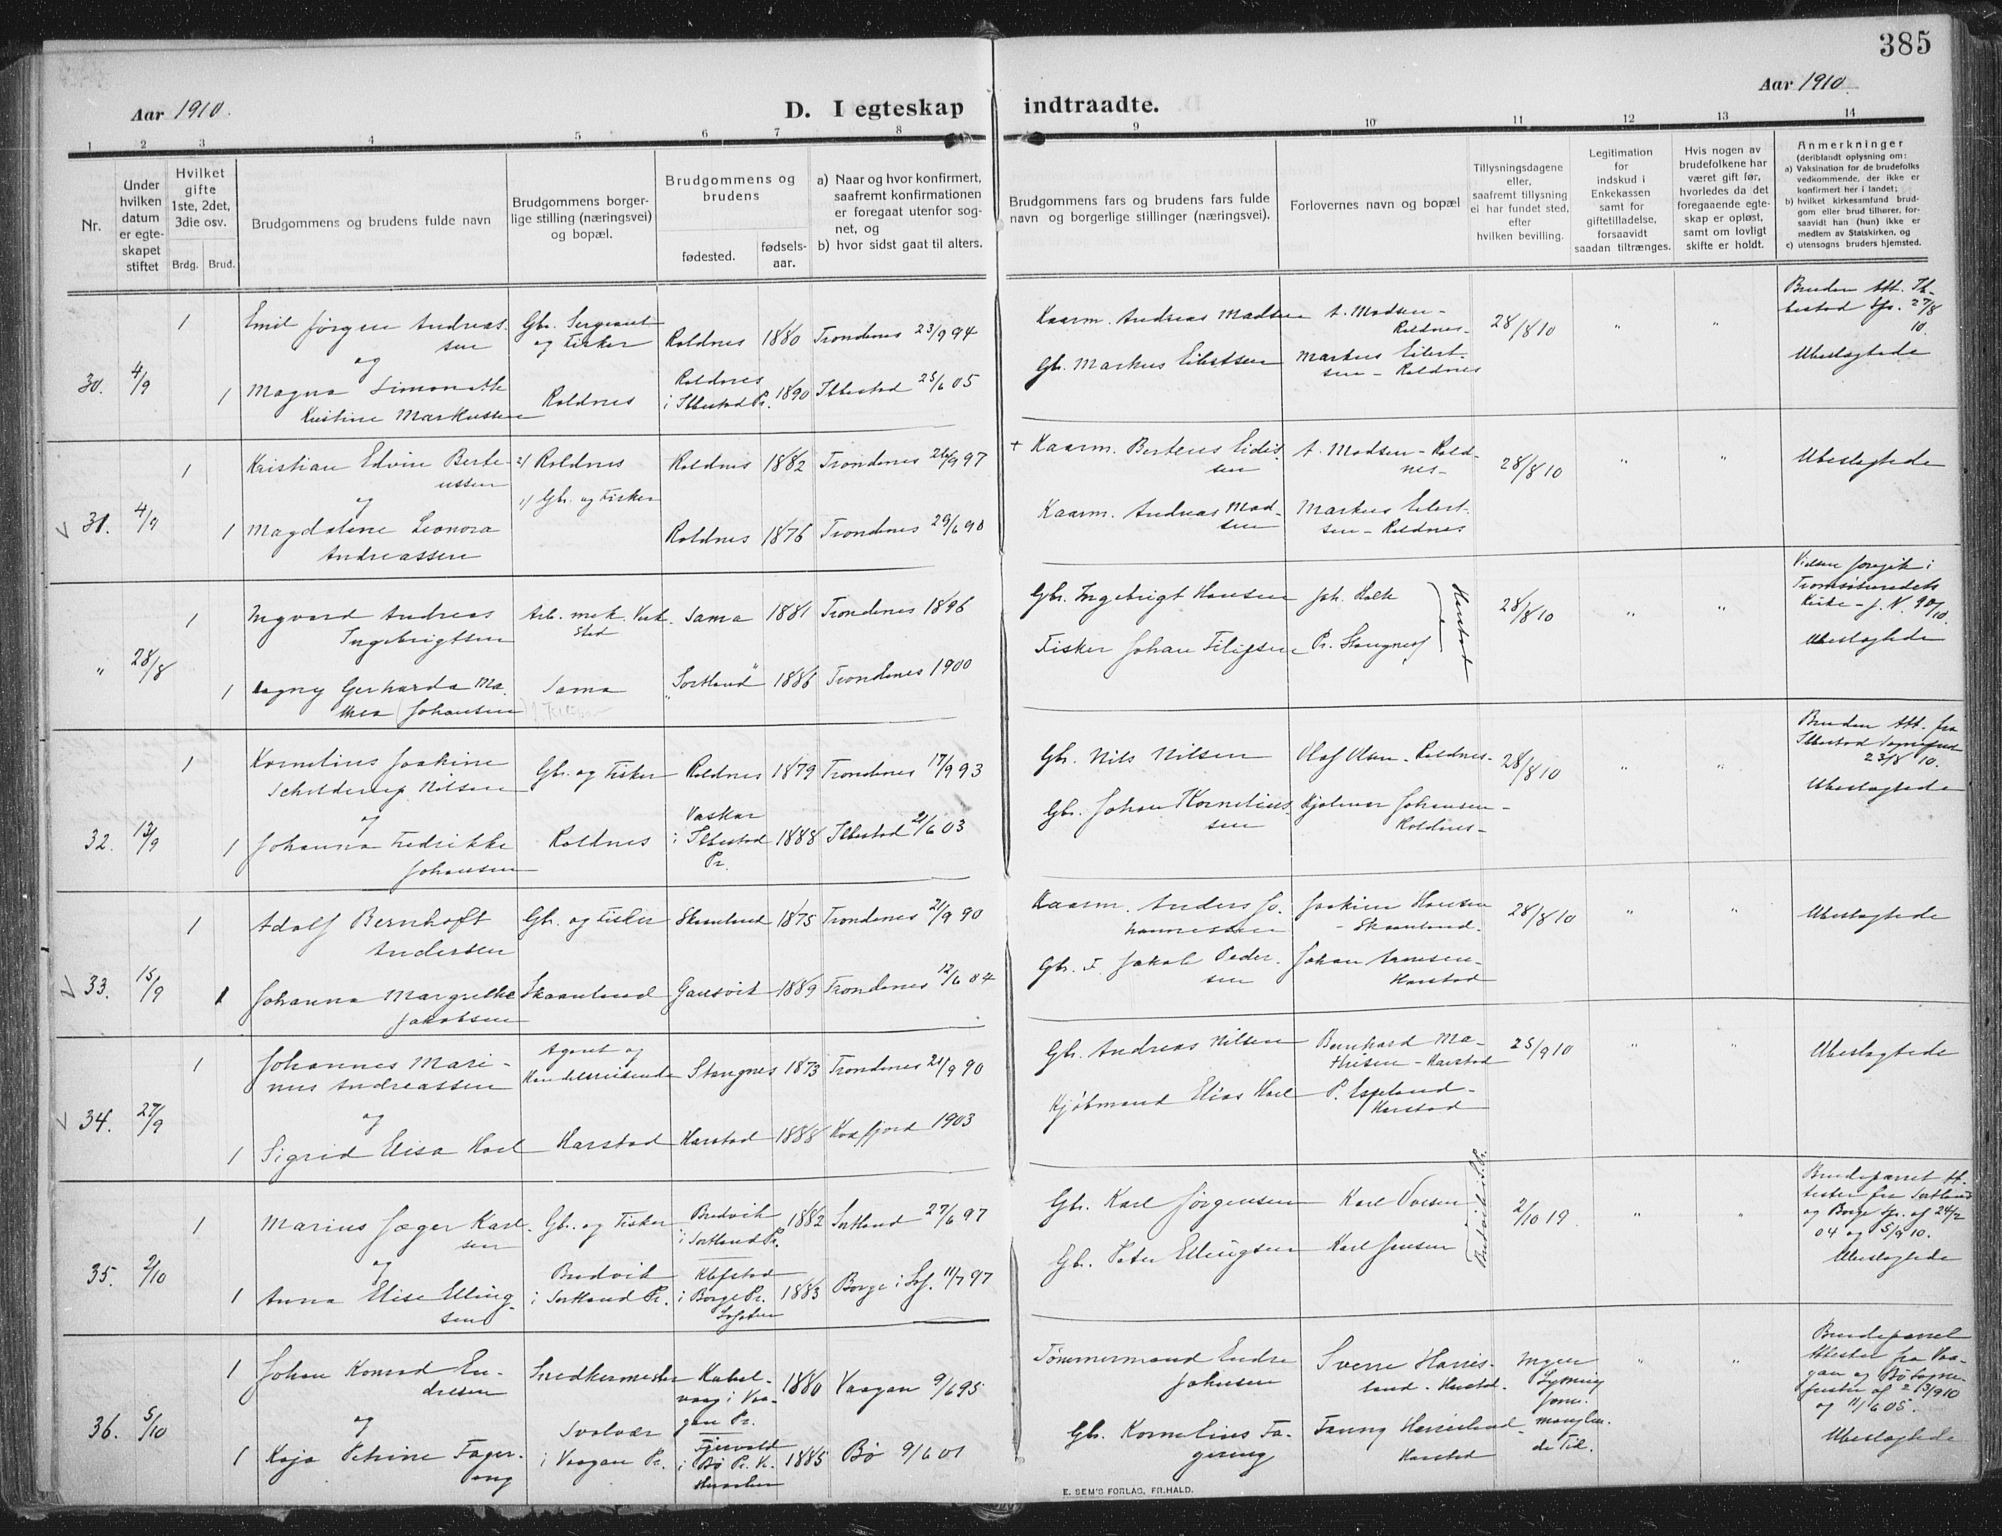 385
Aar 1910.
D. I egteskap indtraadte.
Aar 1910.
1 2 3 4 5 6 7 8 9 10 11 12 13 14
Nr.
Under hvilken datum er egte-skapet stiftet
Hvilket gifte 1ste, 2det, 3die osv.
Brdg. Brud.
Brudgommens og brudens fulde navn
Brudgommens borger-lige stilling (næringsvei) og bopæl.
Brudgommens og brudens
fødested.
fødsels-aar.
a) Naar og hvor konfirmert, saafremt konfirmationen er foregaat utenfor sog-net, og
b) hvor sidst gaat til alters.
Brudgommens fars og brudens fars fulde navn og borgerlige stillinger (næringsvei).
Forlovernes navn og bopæl
Tillysningsdagene eller, saafremt tillysning ei har fundet sted, efter hvilken bevilling.
Legitimation for indskud i Enkekassen samt for giftetilladelse, forsaavidt saadan tiltrænges.
Hvis nogen av brudefolkene har været gift før, hvorledes da det foregaaende egte-skap er opløst, samt om lovligt skifte er holdt.
Anmerkninger
(deriblandt oplysning om:
a) Vaksination for de brudefolks vedkommende, der ikke er konfirmert her i landet;
b) hvilket kirkesamfund brud-gom eller brud tilhører, for-saavidt han (hun) ikke er medlem av Statskirken, og
c) utensogns bruders hjemsted.
30. 4/9
1 Emil Jørgen Andreas-sen Gbr. Sergeant og Fisker Roldnes 1880 Trondenes 23/9 94 Kaarm. Andreas Madsen A. Madsen - Roldnes- 28/8 10 " "
Bruden att. Ib-bestad Spr. 27/8 10.
og
1 Magna Simonath Kristine Markussen Roldnes Roldnes i Ibbestad Pr. 1890 Ibbestad 25/6 05 Gbr. Markus Eilertsen Markus Eilert-sen - Roldnes Ubeslægtede
31. 4/9
1 Kristian Edvin Berte-ussen 2) Roldnes Roldnes 1882 Trondenes 26/9 97 + Kaarm. Berteus Eidis-sen A. Madsen - Rold-nes- 28/8 10 " " Ubeslægtede
og 1) Gbr. og Fisker
1 Magdalene Leonora Andreassen Roldnes 1876 Trondenes 29/6 90 Kaarm. Andreas Mad-sen Markus Eilert-sen - Roldnes
" 28/8
1 Ingvard Andreas Ingebrigtsen Arb. mek. Verk-sted Sama 1881 Trondenes 1896 Gbr. Ingebrigt Hansen Joh. Holt Harstad 28/8 10 " "
Vielsen foregik i Tromsøsundets Kirke - j. N. 90/10.
1 Dagny Gerharda Ma-thea (Johansen) Sama "Sortland" 1886 Trondenes 1900 Fisker Johan Filipsen P. Stangnes Ubeslægtede
32. 13/9
1 Kornelius Joakim Schelderup Nilsen Gbr. og Fisker Roldnes 1879 Trondenes 17/9 93 Gbr. Nils Nilsen Olaf Olsen - Roldnes- 28/8 10 " "
Bruden att. fra Ibbestad Sognepr. 23/8 10.
og
1 Johanna Fredrikke Johansen Roldnes Vaskar i Ibbestad Pr. 1888 Ibbestad 21/6 03 Gbr. Johan Kornelius-sen Hjalmar Johansen - Roldnes- Ubeslægtede
33. 15/9
1 Adolf Bernhoft Andersen Gbr. og Fisker Skaanland 1875 Trondenes 21/9 90 Kaarm. Anders Jo-hannessen Joakim Hansen - Skaanland. 28/8 10 " " Ubeslægtede
1 Johanna Margrethe Jakobsen Skaanland Gausvik 1889 Trondenes 12/6 04 Gbr. F. Jakob Peder-sen Johan Arnesen - Harstad
34. 27/9
1 Johannes Mari-nus Andreassen Agent og Handelsreisende Stangnes 1873 Trondenes 21/9 90 Gbr. Andreas Nilsen Bernhard Ma-thisen - Harstad 25/9 10 " " Ubeslægtede
og
1 Sigrid Elisa Hoel Harstad Harstad 1888 Kvæfjord 1903 Kjøbmand Elias Hoel P. Espeland - Harstad
35. 2/10
1 Marius Jæger Karl-sen Gbr. og Fisker Bredvik i Sortland Pr. 1882 Sortland 27/6 97 Gbr. Karl Jørgensen Karl Olsen Bredvik i S. Pr. 2/10 19. " "
Brudeparret at-tester fra Sortland og Borge Spr. af 24/2 04 og 5/9 10.
og
1 Anna Elise Elling-sen Bredvik i Sortland Pr. Klefstad i Borge Pr. Lofoten 1883 Borge i Lof. 11/7 97 Gbr. Peter Ellingsen Karl Jensen Ubeslægtede
36. 5/10
1 Johan Konrad En-dresen Snedkermester Kabel-vaag i Vaa-gan Pr. 1880 Vaagan 9/6 95 Tømmermand Endre Johnsen Sverre Harris-land. Harstad. Ingen Lysning " "
Brudeparret Attester fra Vaa-gan og Bø Sogne-prester af 23/9 10 og 11/6 05.
og
1 Kaja Petrine Fager-eng Svolvær i Vaagan Pr. 1885 Bø 9/6 01 Gbr. Kornelius Fa-gereng Fanny Harrisland - Harstad Ubeslægtede
E. SEM'S FORLAG, FR.HALD.